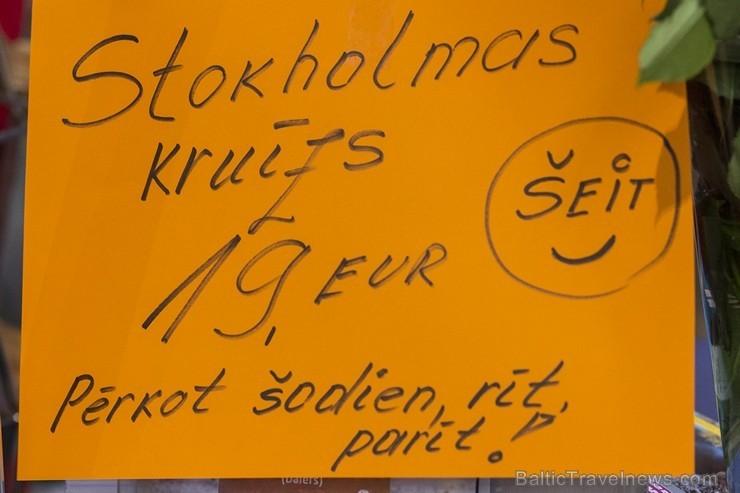 Stokholmas
kruīzs
ŠEIT
19, EUR
Pērkot šodien, rīt,
parīt!
(Dalers)
BalticTravelnews.com